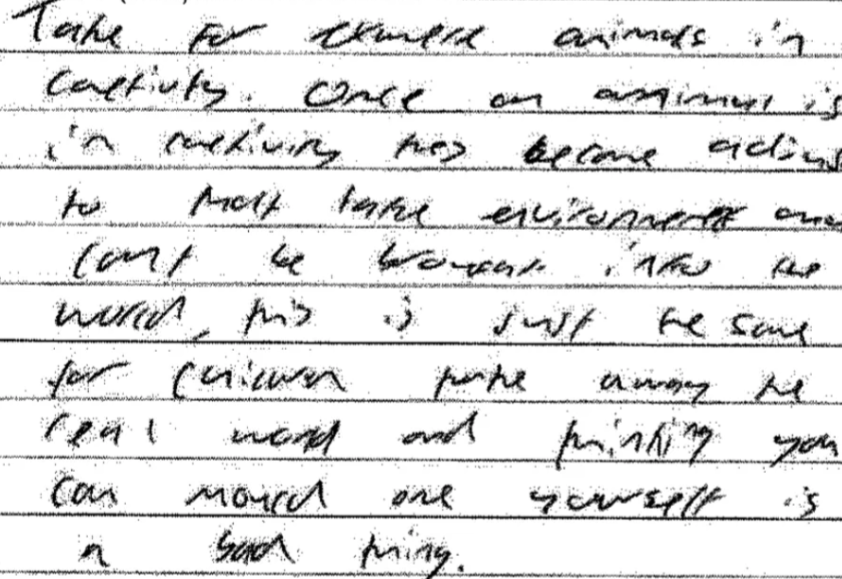 Take for example animals in
captivity. Once an animal is
in captivity they become
to that environment and
can't be brought into the
world, this is just the same
for children take away the
real world and thinking you
can mould one yourself is
a bad thing.